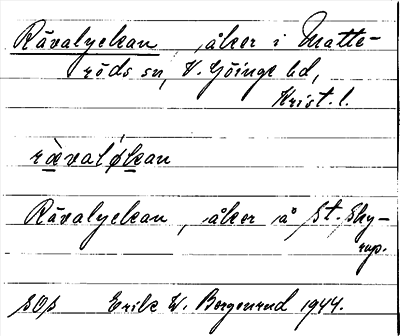 Rävalyckan, åker i Matte-
röds sn, V. Göinge hd,
Krist. l.
rävaløkan
Rävalyckan, åker å St. Sky-
rup.
SOS Erik W. Bergenrud 1944.